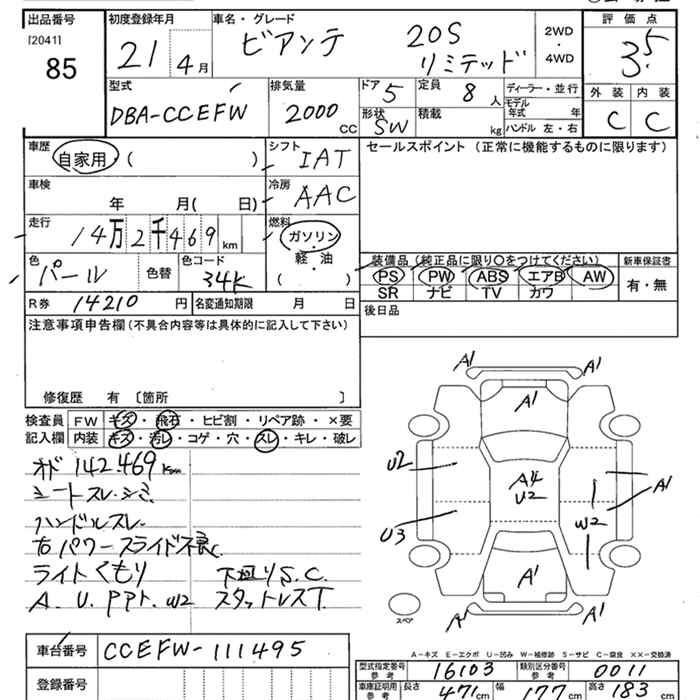 出品番号 初度登録年月 車名・グレード 評価点
[2041]
85
21 4月 ビアンテ 20S リミテッド 2WD・4WD 3.5
型式 排気量 ドア 5 定員 8人 ディーラー・並行 外装 内装
DBA-CCEFW 2000CC 形状 SW 積載 kg モデル年式 年 C C
ハンドル 左・右
車歴 自家用・( ) シフト IAT セールスポイント (正常に機能するものに限ります)
車検 年 月( 日) 冷房 AAC
走行 14万2千469km 燃料 ガソリン・軽・油 ( )
色 パール 色替 色コード 34K
装備品 (純正品に限り○をつけてください) 新車保証書
PS PW ABS エアB AW 有・無
SR ナビ TV カワ
R券 14210円 名変通知期限 月 日 後日品
注意事項申告欄 (不具合内容等は具体的に記入して下さい)
修復歴 有 〔箇所 〕
検査員 FW キズ・飛石・ヒビ割・リペア跡・×要
記入欄 内装 キズ・汚レ・コゲ・穴・スレ・キレ・破レ
オド 142.469km
シートスレ.シミ
ハンドルスレ
右パワースライド不良
ライトくもり 下廻りS.C.
A.U.PPt.W2 スタットレスT
A1 A1
A1
U2 A4 U2 A1
U3 W2
A1
A1 A1
スペア
車台番号 CCEFW-111495
登録番号
A-キズ E-エクボ U-凹み W-補修跡 S-サビ C-腐食 ××-交換済
型式指定番号 参考 16103 類別区分番号 参考 0011
車庫証明用 参考 長さ 471cm 幅 177cm 高さ 183cm